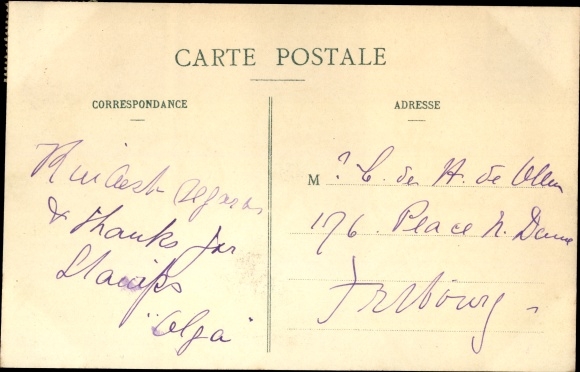 CARTE POSTALE
CORRESPONDANCE
Kindest regards
& thanks for
Stamps
"Olga"
ADRESSE
M ? C. de H. de
176. Place N. Dame
Fribourg